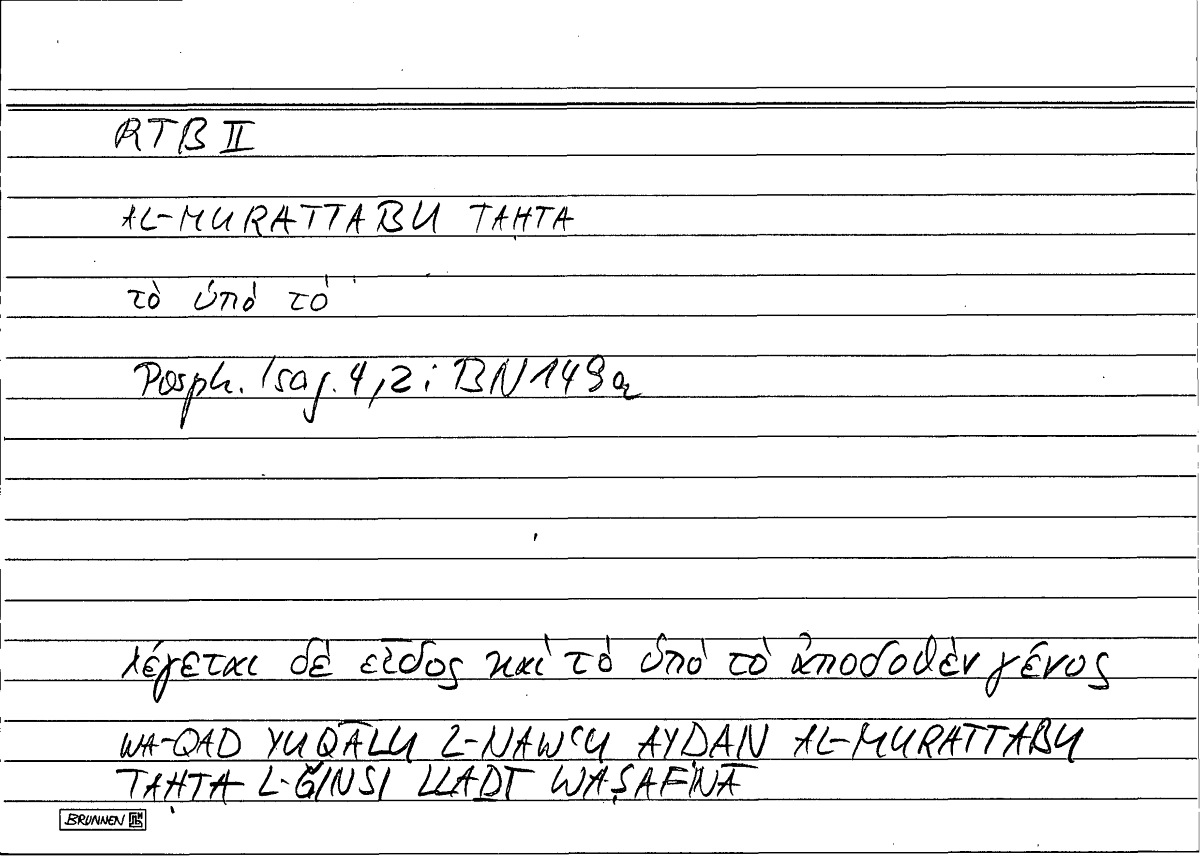 RTB II
AL-MURATTABU TAḤTA
τὸ ὑπὸ τὸ
Porph. Isag. 4,2; BN 149a
λέγεται δὲ εἶδος καὶ τὸ ὑπὸ τὸ ἀποδοθὲν γένος
WA-QAD YUQĀLU L-NAWʿU AYḌAN AL-MURATTABU
TAḤTA L-ǦINSI LLAḎĪ WAṢAFNĀ
BRUNNEN